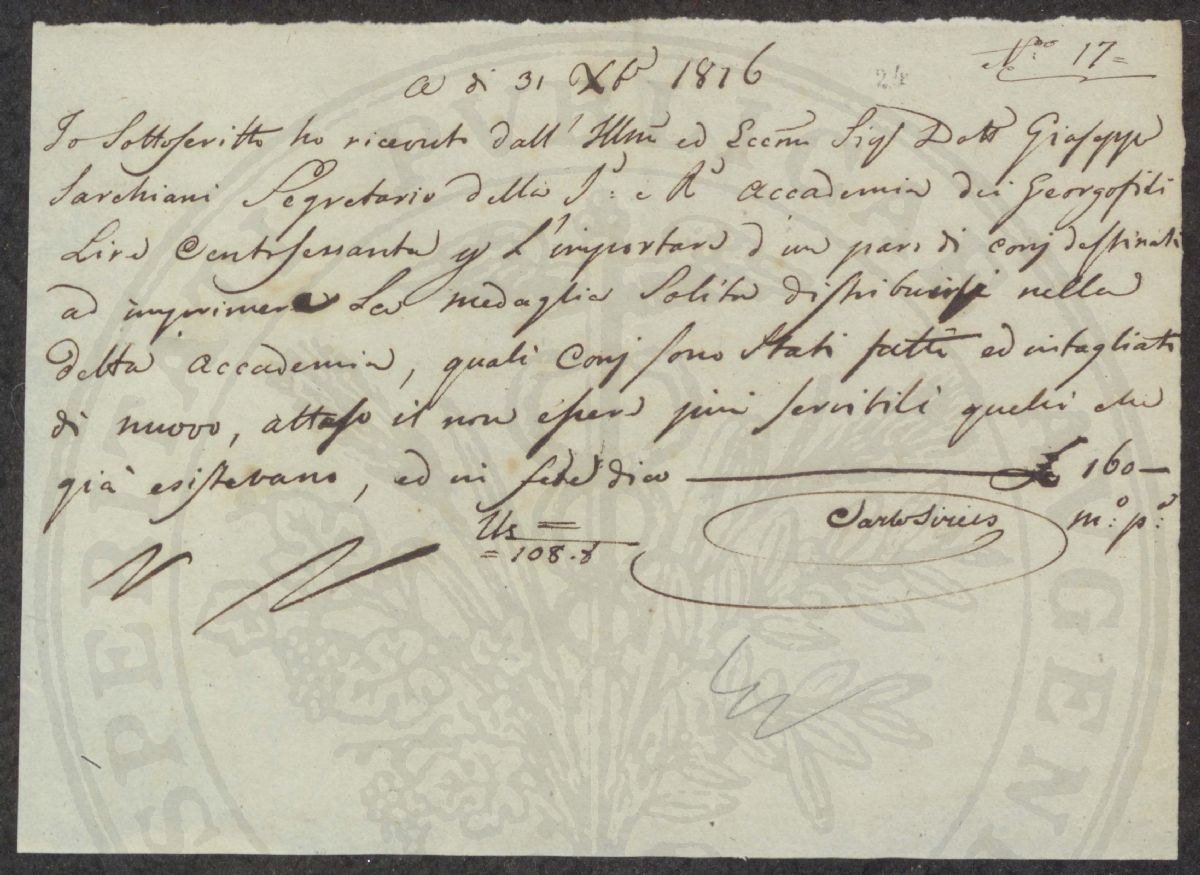 N.ro 17=
24
A di 31 Xbre 1816
Io Sottoscritto ho ricevuto dall' Illmo ed Eccmo Sigr Dott Giuseppe
Sarchiani Segretario della I: e R Accademia dei Georgofili
Lire Centosessanta p L'importare d'un paro di conj destinati
ad imprimere La medaglia Solita distribuirsi nella
detta Accademia, quali Conj sono Stati fatti ed intagliati
di nuovo, atteso il non essere più servibili quelli che
già esistevano, ed in fede dico £ 160—
Carlo Siries m:o p:a
=108.8
SPERITATI PVBLICAE AVGEN